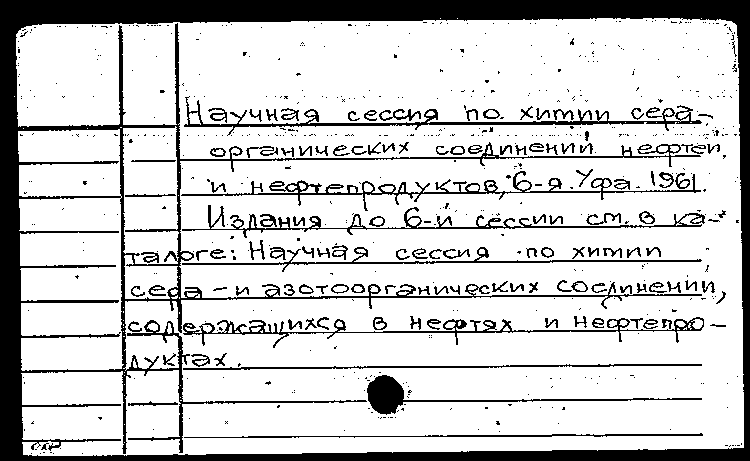 Научная сессия по химии сера-
органических соединений нефтей
и нефтепродуктов, 6-я. Уфа. 1961.
Издания до 6-й сессии см. в ка-
талоге: Научная сессия по химии
сера-и азотоорганических соединений,
содержащихся в нефтях и нефтепро-
дуктах.